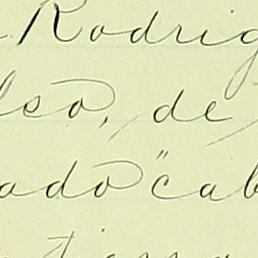 Rodrig
lso, de
ado "cab